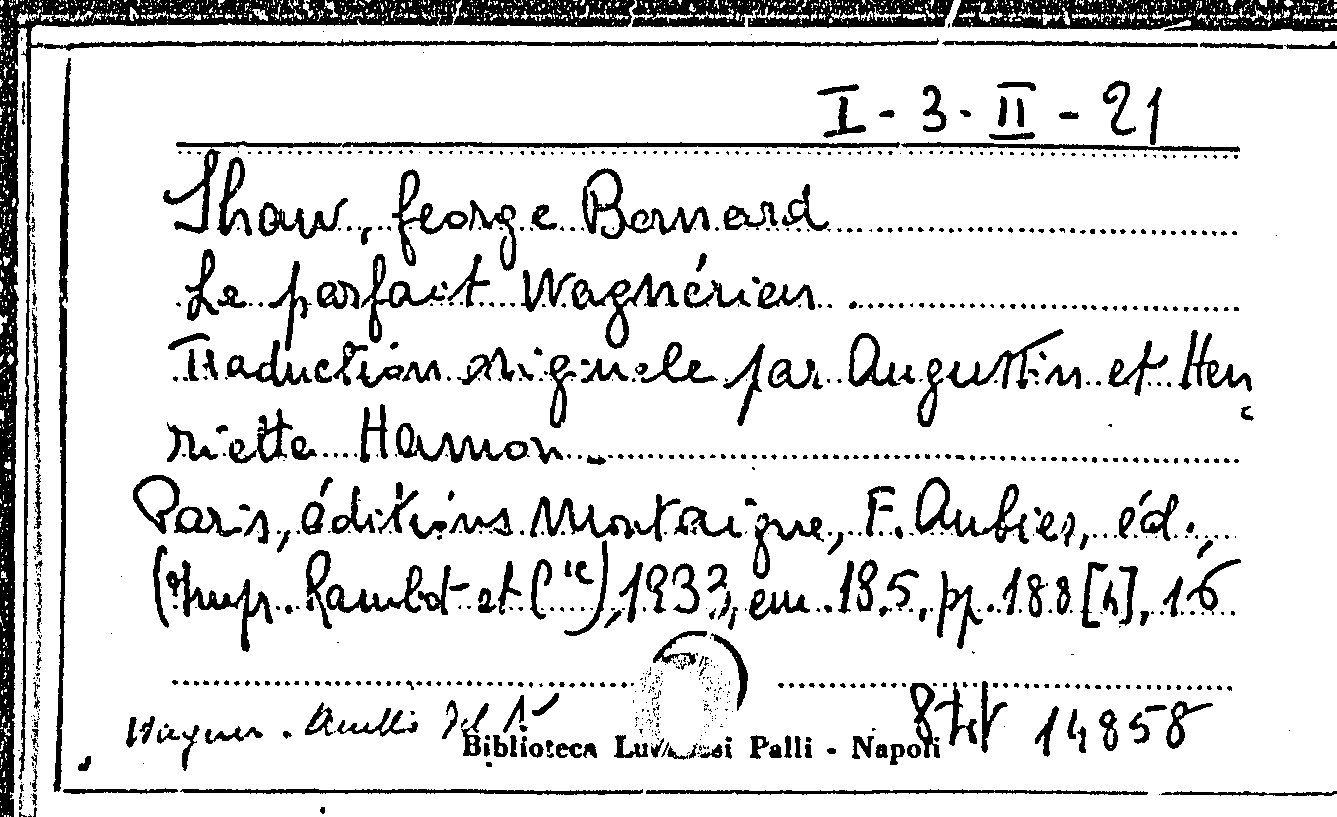 I - 3 - II - 21
Shaw, George Bernard
Le parfait Wagnérien.
Traduction originale par Augustin et Hen
riette Hamon.
Paris, éditions Montaigne, F. Aubier, éd.,
(Impr. Rambot et Cie), 1933, cm. 18.5, pp. 188 [4], 16
Wagner. Anello del
14858
Biblioteca Lucchesi Palli - Napoli